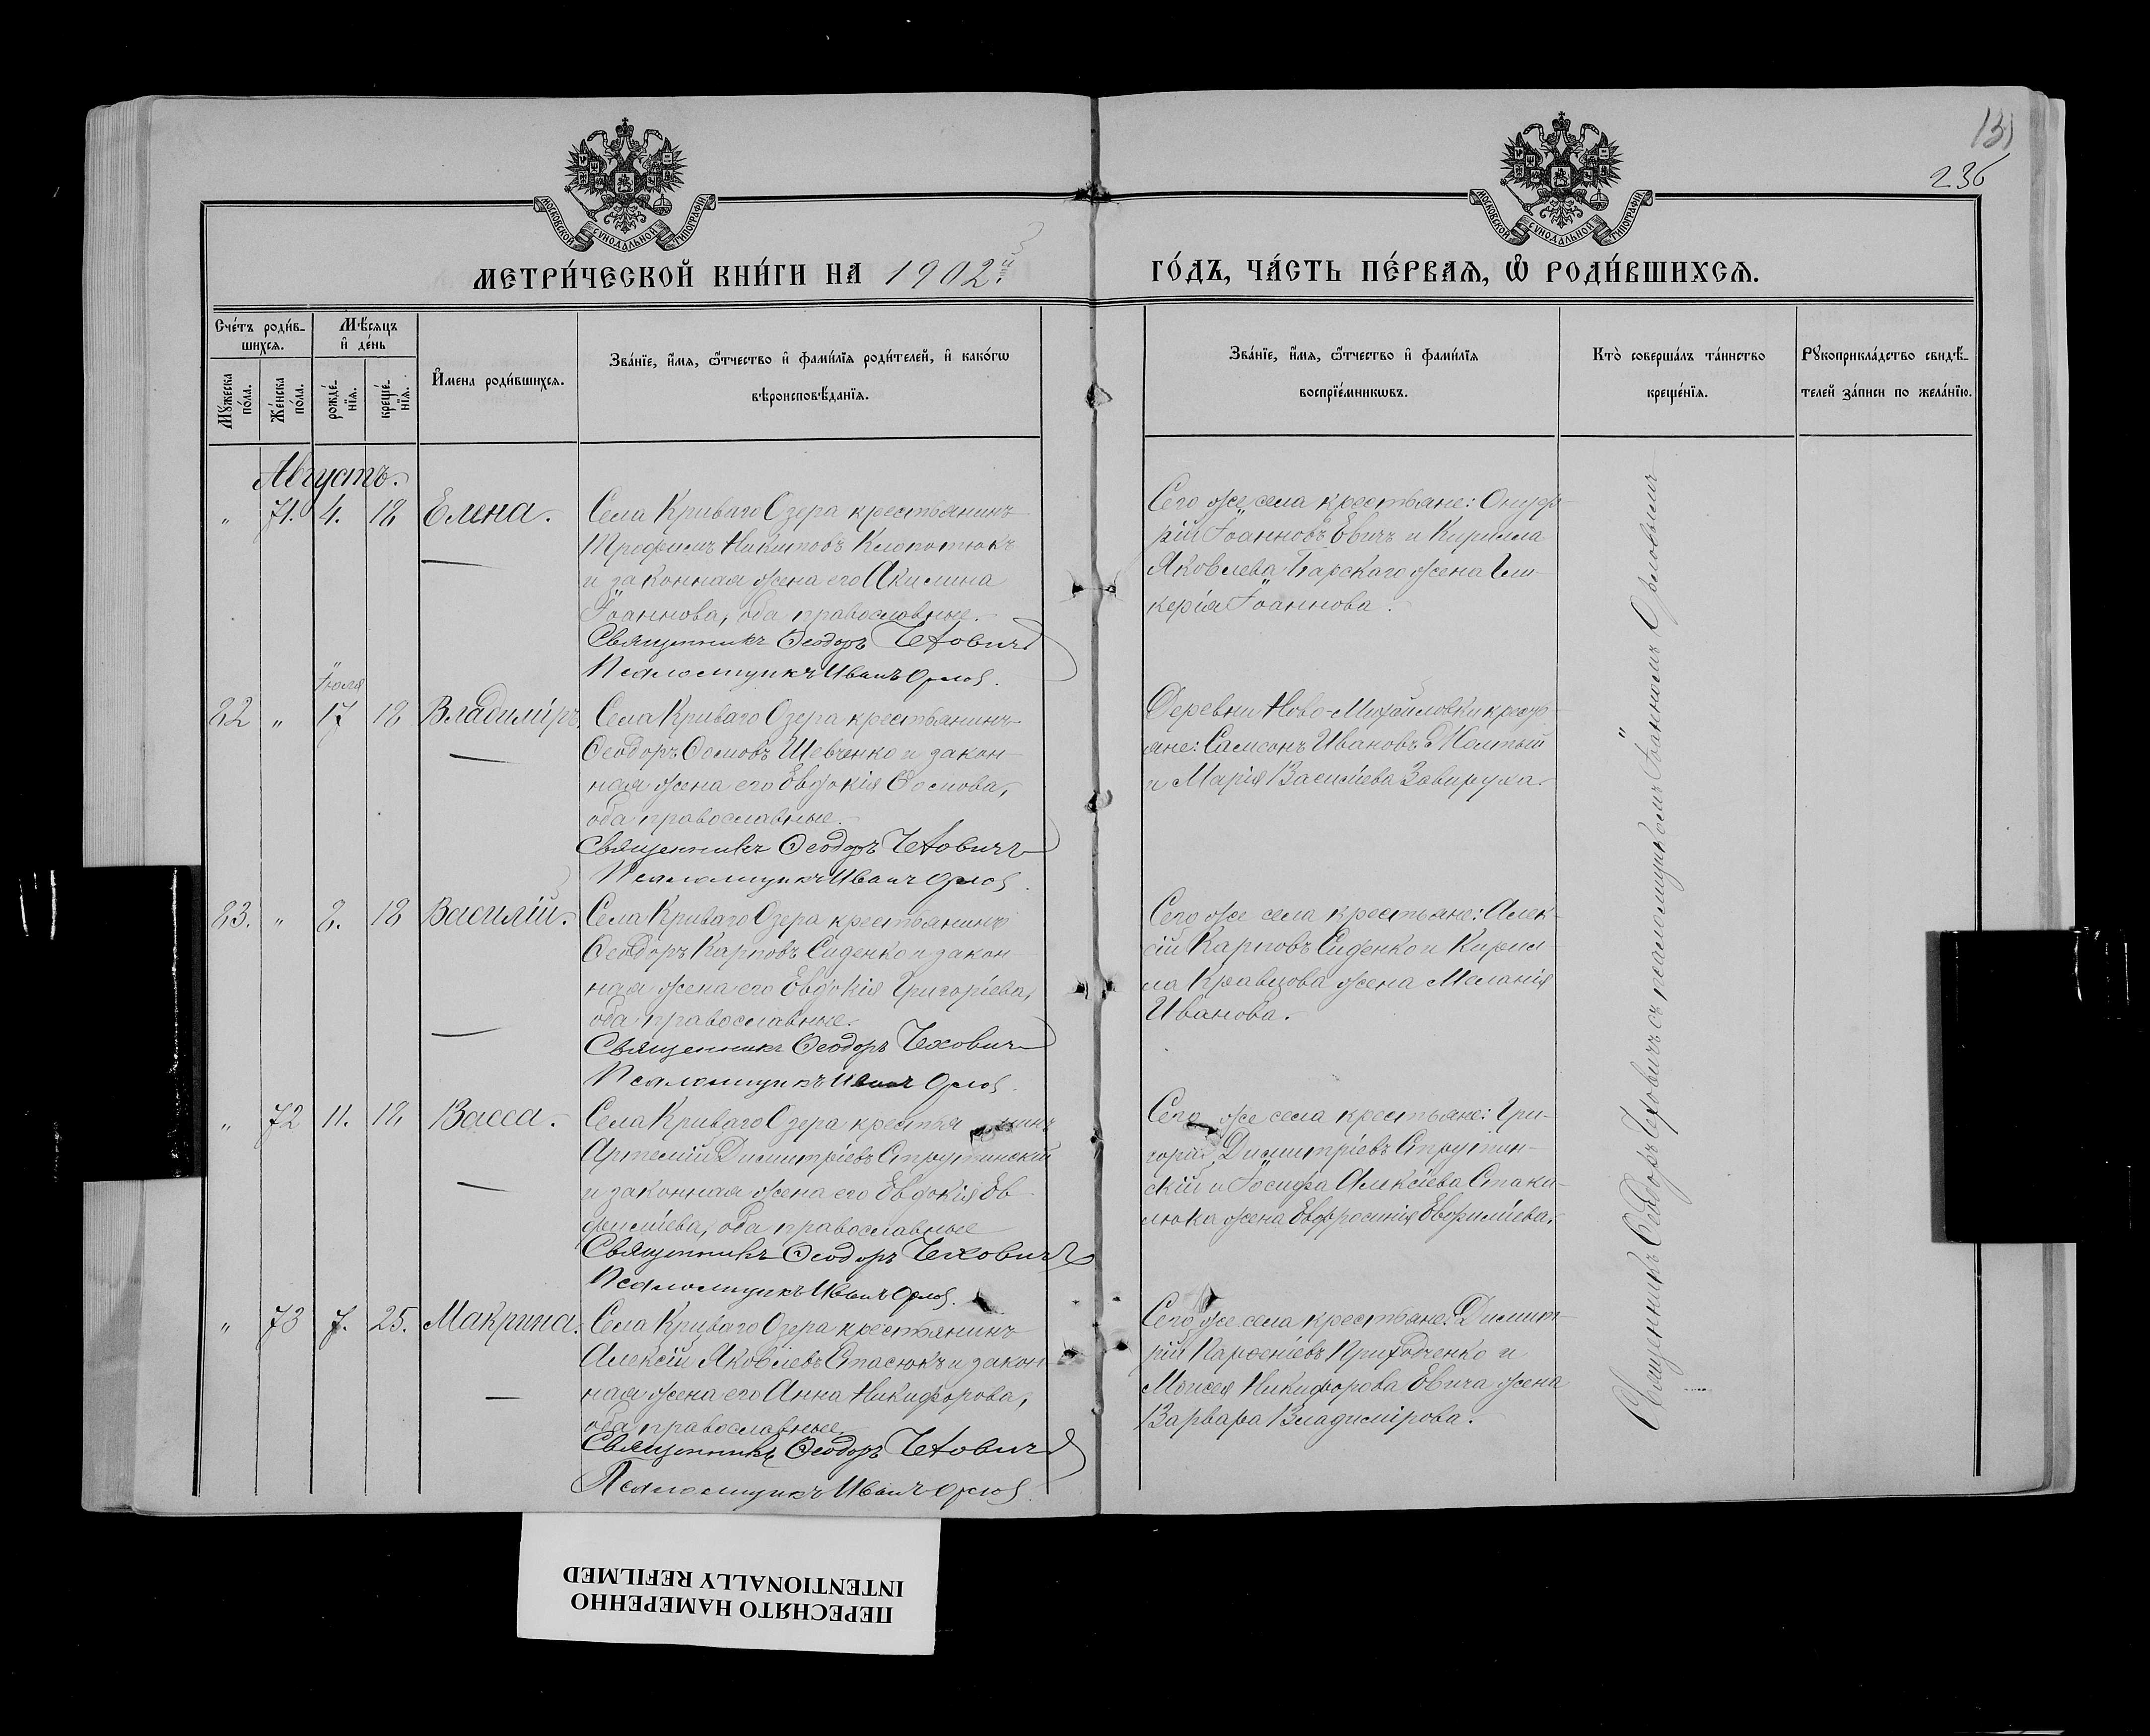 131
236
МОСКОВСКОЙ СѴНОДАЛЬНОЙ ТИПОГРАФІИ
МОСКОВСКОЙ СѴНОДАЛЬНОЙ ТИПОГРАФІИ
МЕТРИ́ЧЕСКОЙ КНИ́ГИ НА 1902й
ГО́ДЪ, ЧА́СТЬ ПЕ́РВАѦ, Ѡ҆ РОДИ́ВШИХСѦ.
Сче́тъ роди́в-
шихсѧ.
Мꙋ́жеска по́ла.
Же́нска по́ла.
Мѣ́сѧцъ
и҆ де́нь
рожде́-нїѧ.
креще́-нїѧ.
И҆мена роди́вшихсѧ.
Зва́нїе, и҆́мѧ, ѻ҆́тчество и҆ фами́лїѧ роди́телей, и҆ како́гѡ
вѣроисповѣ́данїѧ.
Зва́нїе, и҆́мѧ, ѻ҆́тчество и҆ фами́лїѧ
воспрїе́мникѡвъ.
Кто̀ соверша́лъ та́инство
креще́нїѧ.
Рꙋкоприкла́дство свидѣ́-
телей за́писи по жела́нїю.
Августъ.
" 71. 4. 18 Елена.
Села Криваго Озера крестьянинъ
Трофимъ Никитовъ Клопотюкъ
и законная жена его Акилина
Іоаннова, оба православные.
Священникъ Ѳеодоръ Чеховичъ
Псаломщикъ Иванъ Орловъ.
Сего же села крестьяне: Онуф-
рій Іоанновъ Евичъ и Кирилла
Яковлева Барскаго жена Гли-
керія Іоаннова.
Іюля
82 " 17 18 Владиміръ.
Села Криваго Озера крестьянинъ
Ѳеодоръ Ѳомовъ Шевченко и закон-
ная жена его Евдокія Ѳомова,
оба православные.
Священникъ Ѳеодоръ Чеховичъ
Псаломщикъ Иванъ Орловъ.
Деревни Ново-Михайловки кресть-
яне: Самсонъ Ивановъ Желтый
и Марія Василіева Завируха.
83. " 8. 18 Василій.
Села Криваго Озера крестьянинъ
Ѳеодоръ Карповъ Сиденко и закон-
ная жена его Евдокія Григоріева,
оба православные.
Священникъ Ѳеодоръ Чеховичъ
Псаломщикъ Иванъ Орловъ.
Сего же села крестьяне: Алек-
сій Карповъ Сиденко и Кирил-
ла Кравцова жена Меланія
Иванова.
" 72 11. 18 Васса.
Села Криваго Озера крестьянинъ
Артемій Димитріевъ Струтинскій
и законная жена его Евдокія Ев-
фиміева, оба православные
Священникъ Ѳеодоръ Чеховичъ
Псаломщикъ Иванъ Орловъ.
Сего же села крестьяне: Гри-
горій Димитріевъ Струтин-
скій и Іосифа Алексіева Стака-
люка жена Евфросинія Евфиміева.
" 73 7. 25. Макрина.
Села Криваго Озера крестьянинъ
Алексій Яковлевъ Стасюкъ и закон-
ная жена его Анна Никифорова,
оба православные.
Священникъ Ѳеодоръ Чеховичъ
Псаломщикъ Иванъ Орловъ.
Сего же села крестьяне: Димит-
рій Парѳеніевъ Приходченко и
Моисея Никифорова Евича жена
Варвара Владимірова.
Священникъ Ѳеодоръ Чеховичъ съ псаломщикомъ Іоанномъ Орловымъ
ПЕРЕСНЯТО НАМЕРЕННО
INTENTIONALLY REFILMED